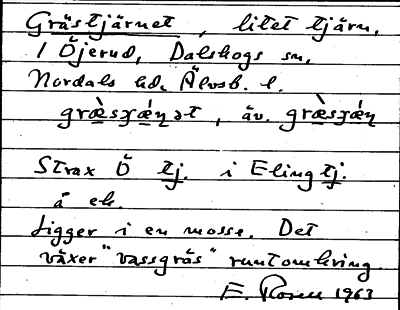 Grästjärnet, litet tjärn,
i Öjerud, Dalskogs sn,
Nordals hd, Älvsb. l.
græ̀sɟǽṇət, äv. græ̀sɟǽṇ
Strax Ö tj. i Elingtj.
å ek.
Ligger i en mosse. Det
växer "vassgräs" runtomkring
E. Rosell 1963